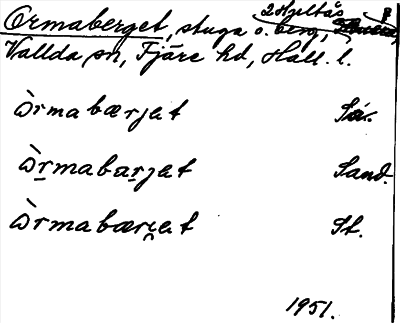 Ormaberget, stuga o. berg, 2 Hjeltås
Vallda sn, Fjäre hd, Hall. l.
òrmabærjet Sä.
òrmabarjet Sand.
òrmabæri̯et St.
1951.